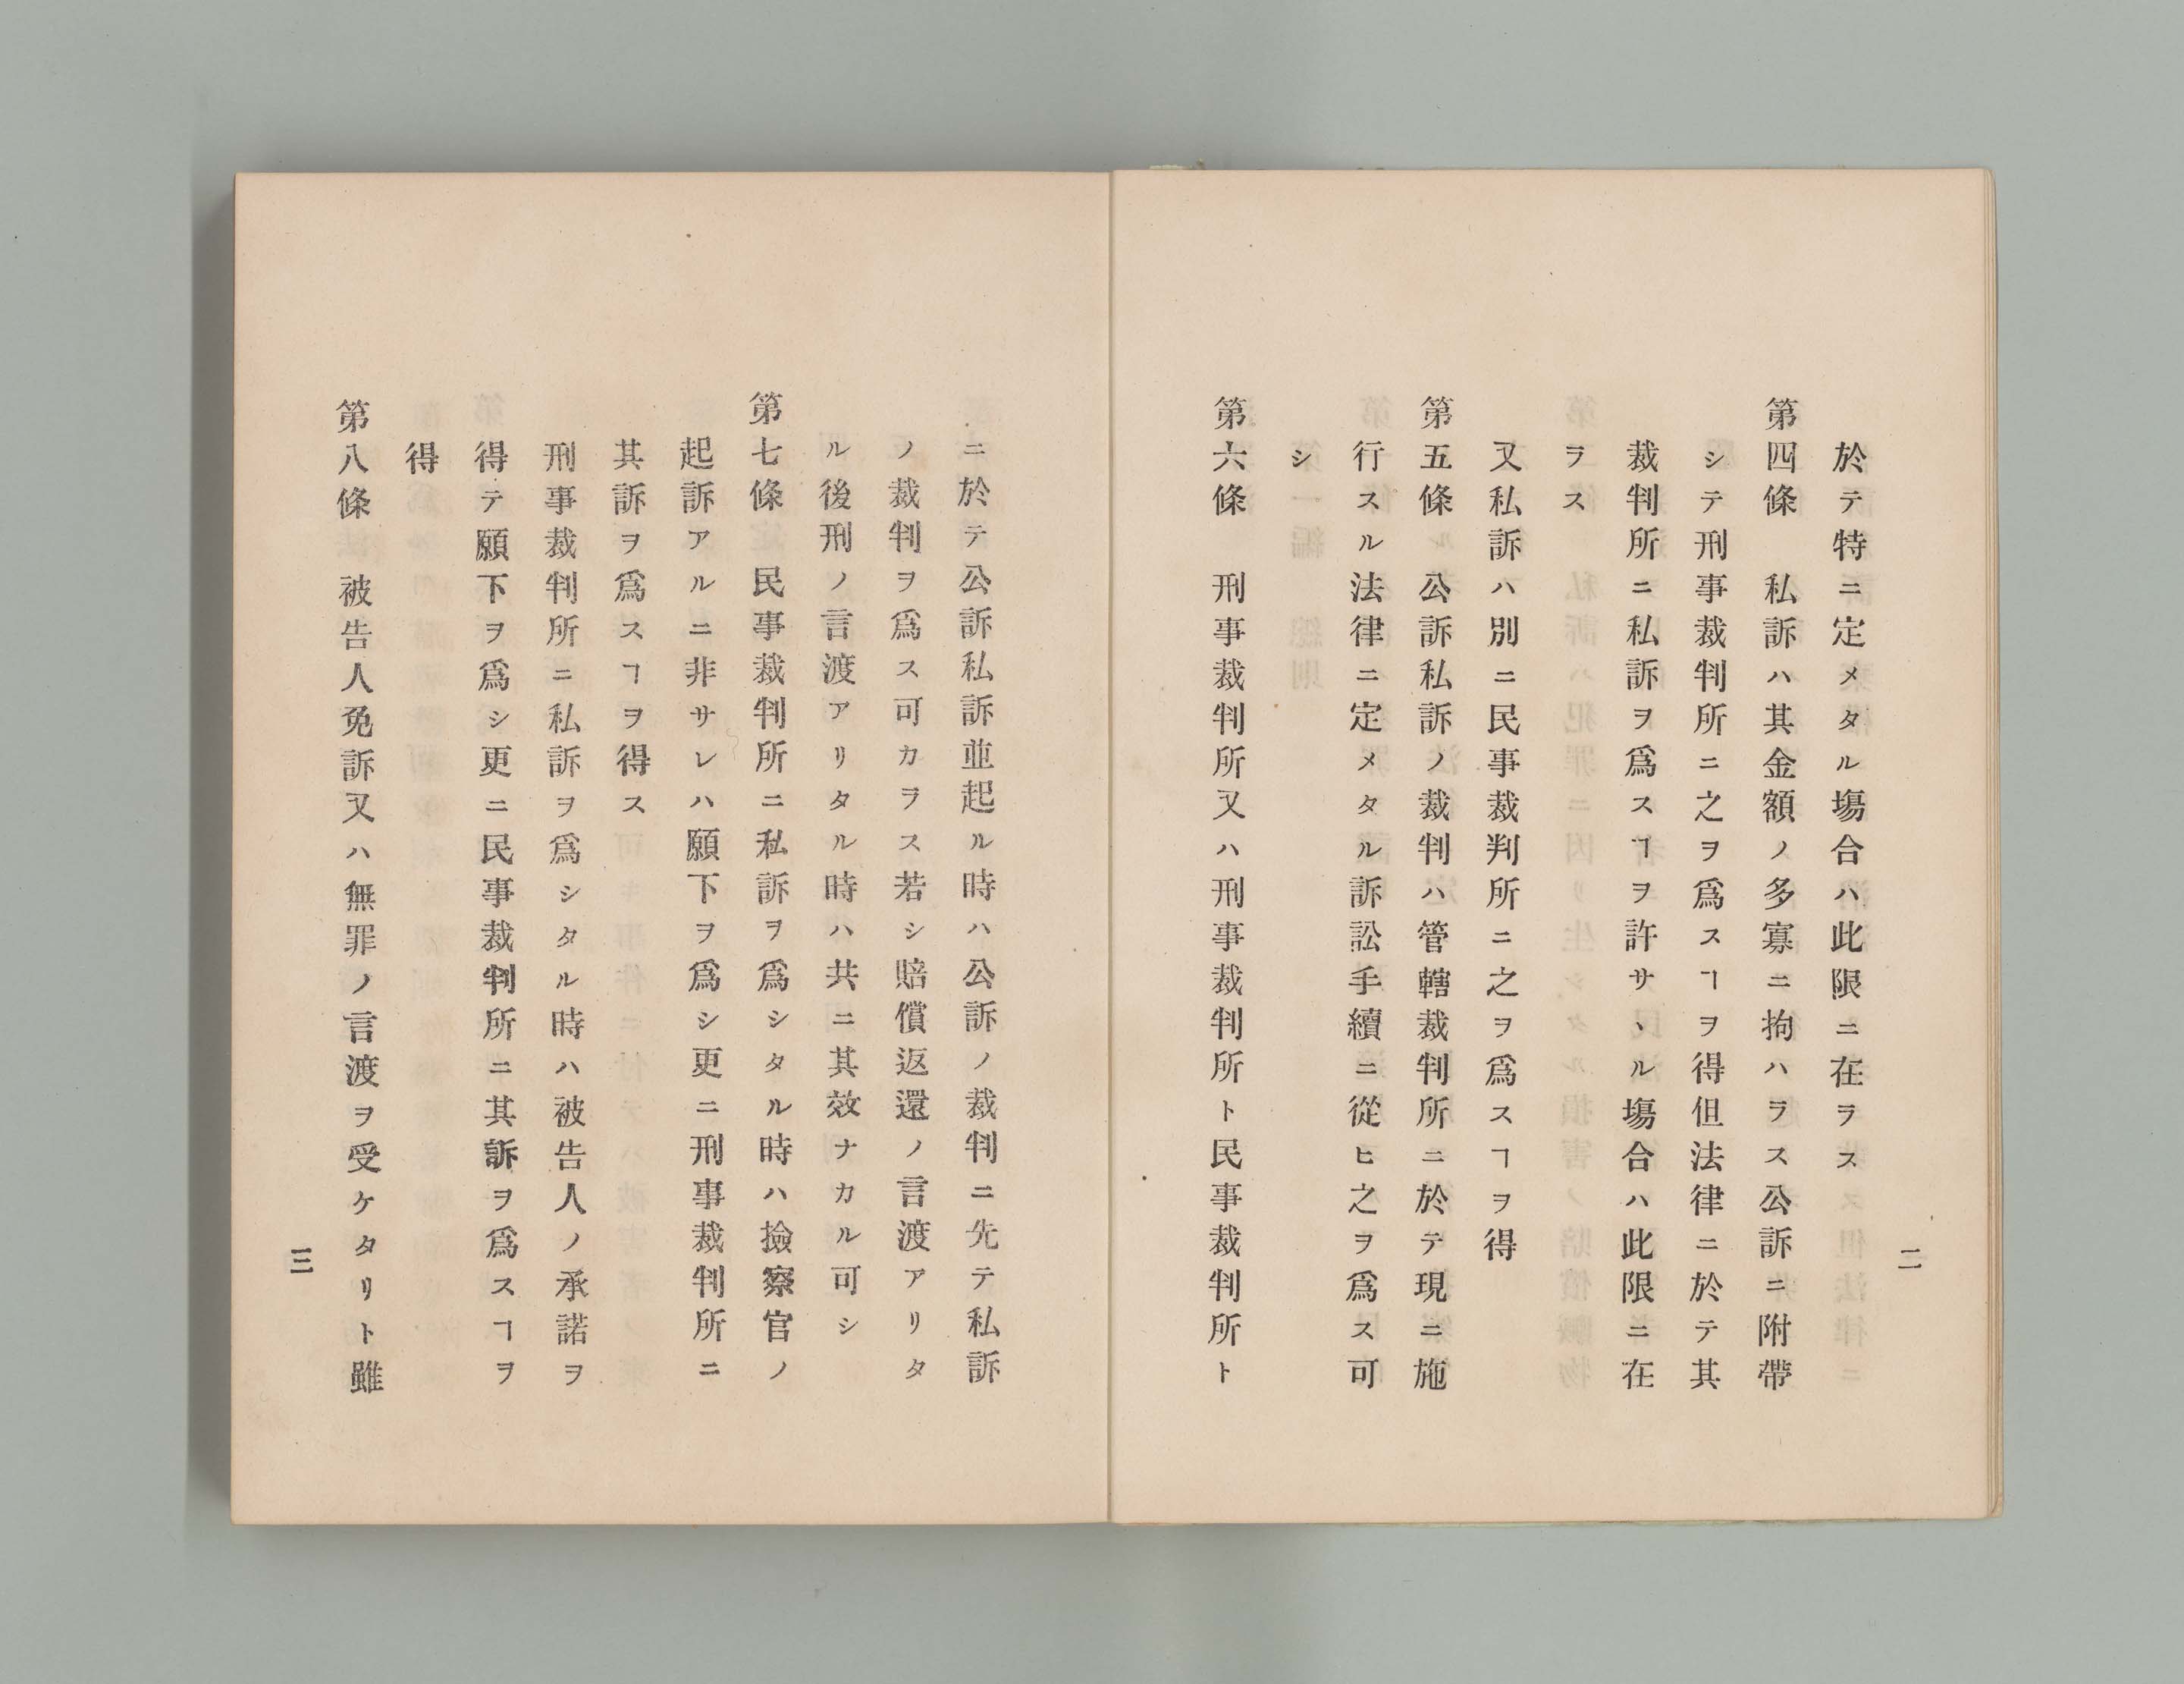 於テ特ニ定メタル塲合ハ此限ニ在ラス
第四條　私訴ハ其金額ノ多寡ニ拘ハラス公訴ニ附帶
シテ刑事裁判所ニ之ヲ爲スヿヲ得但法律ニ於テ其
裁判所ニ私訴ヲ爲スヿヲ許サヽル塲合ハ此限ニ在
ラス
又私訴ハ別ニ民事裁判所ニ之ヲ爲スヿヲ得
第五條　公訴私訴ノ裁判ハ管轄裁判所ニ於テ現ニ施
行スル法律ニ定メタル訴訟手續ニ從ヒ之ヲ爲ス可
シ
第六條　刑事裁判所又ハ刑事裁判所ト民事裁判所ト
二
ニ於テ公訴私訴並起ル時ハ公訴ノ裁判ニ先テ私訴
ノ裁判ヲ爲ス可カラス若シ賠償返還ノ言渡アリタ
ル後刑ノ言渡アリタル時ハ共ニ其效ナカル可シ
第七條　民事裁判所ニ私訴ヲ爲シタル時ハ撿察官ノ
起訴アルニ非サレハ願下ヲ爲シ更ニ刑事裁判所ニ
其訴ヲ爲スヿヲ得ス
刑事裁判所ニ私訴ヲ爲シタル時ハ被告人ノ承諾ヲ
得テ願下ヲ爲シ更ニ民事裁判所ニ其訴ヲ爲スヿヲ
得
第八條　被告人免訴又ハ無罪ノ言渡ヲ受ケタリト雖
三